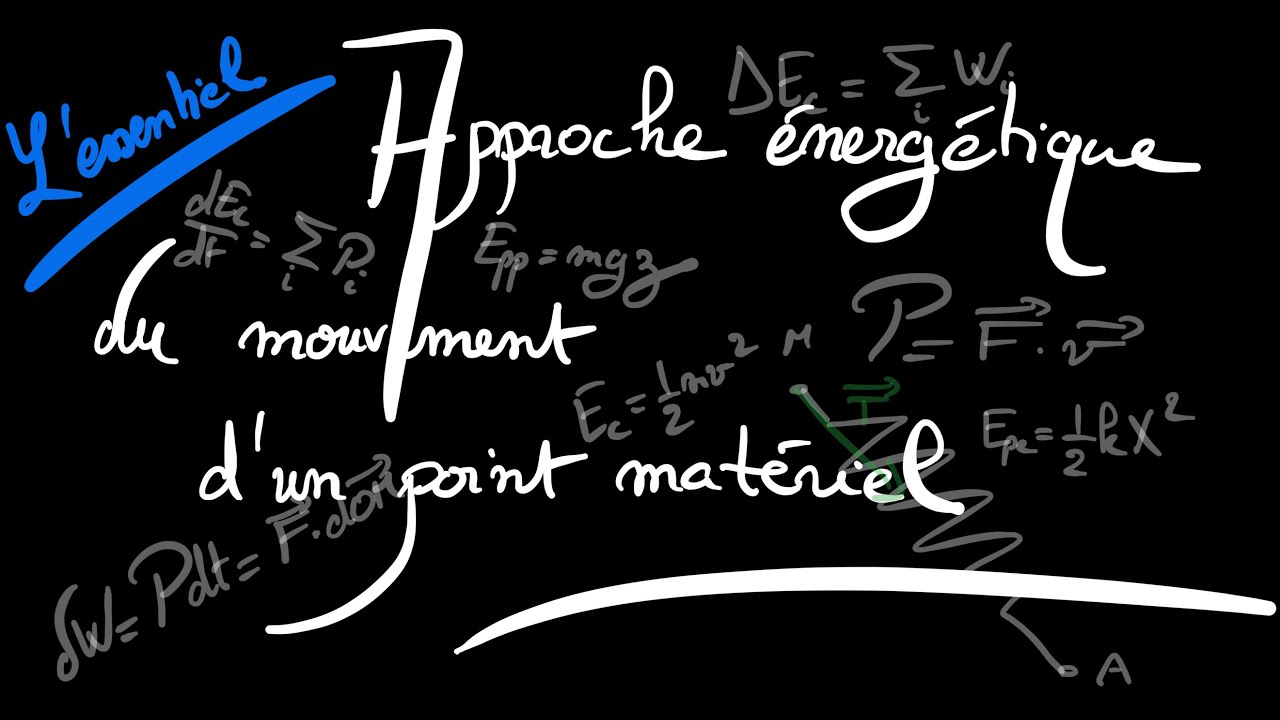 L'essentiel
Approche énergétique
du mouvement
d'un point matériel
ΔEc = Σi Wi
dEc/dt = Σi Pi
Epp = mgz
P = F⃗ . v⃗
Ec = 1/2 mv²
M
T⃗
Epe = 1/2 k X²
δW = Pdt = F⃗ . dOM⃗
A